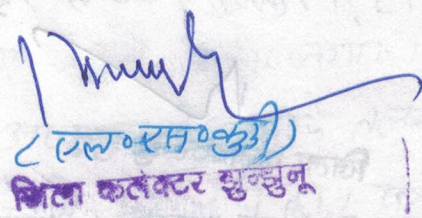 (एल॰एस॰कुड़ी)
जिला कलेक्टर झुन्झुनू